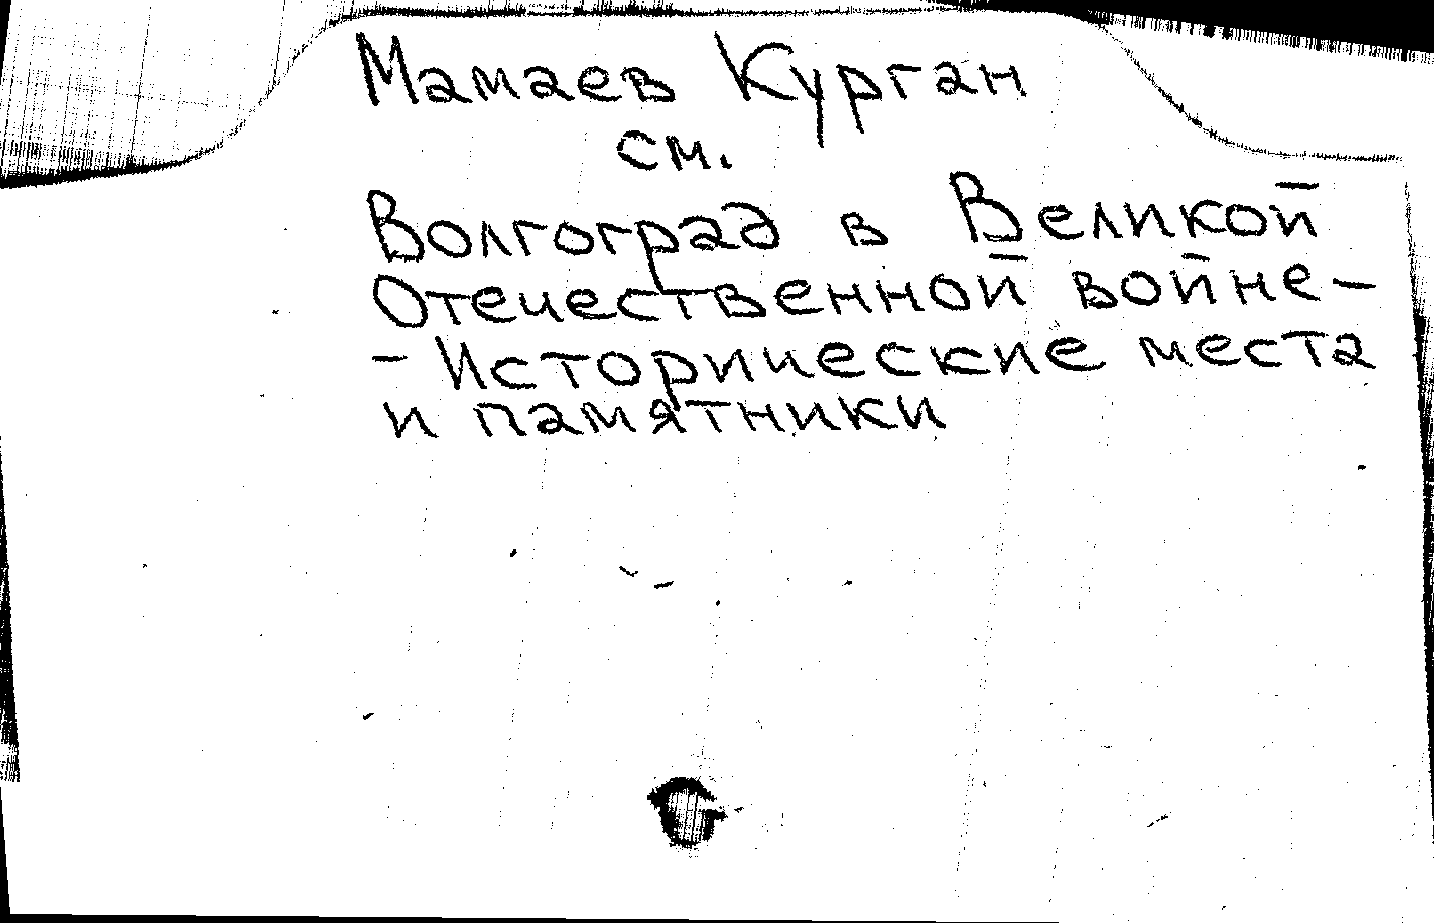 Мамаев Курган
см.
Волгоград в Великой
Отечественной войне –
– Исторические места
и памятники